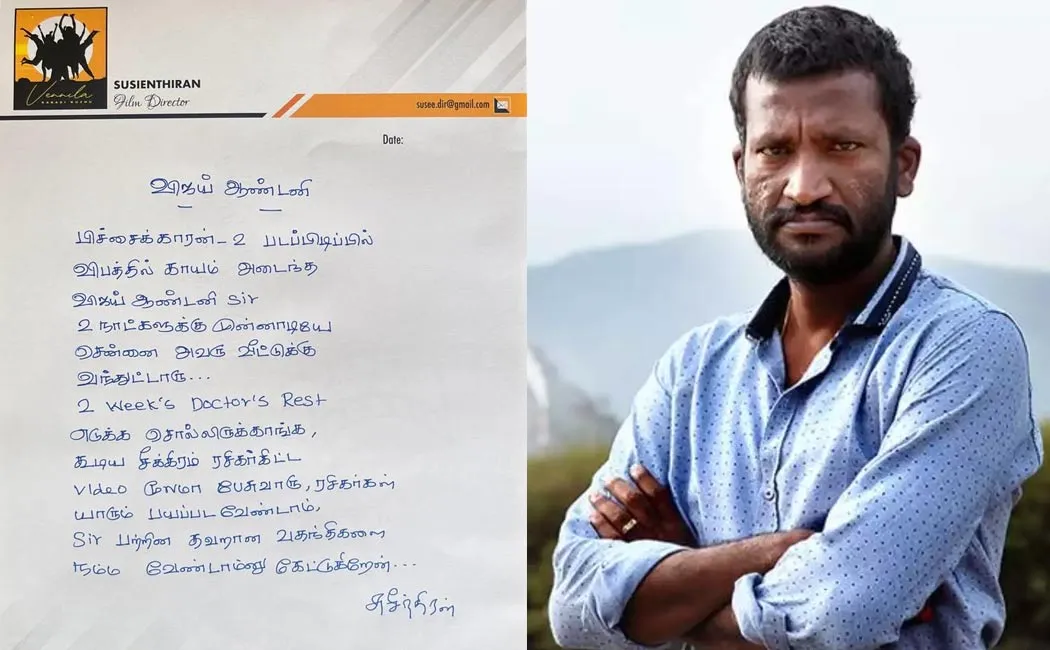 Vennila
KABADI KUZHU
SUSIENTHIRAN
Film Director
susee.dir@gmail.com
Date:
விஜய் ஆண்டனி
பிச்சைக்காரன் - 2 படப்பிடிப்பில்
விபத்தில் காயம் அடைந்த
விஜய் ஆண்டனி Sir
2 நாட்களுக்கு முன்னாடியே
சென்னை அவரு வீட்டுக்கு
வந்துட்டாரு...
2 Week's Doctor's Rest
எடுக்க சொல்லிருக்காங்க,
கூடிய சீக்கிரம் ரசிகர்கிட்ட
Video மூலமா பேசுவாரு, ரசிகர்கள்
யாரும் பயப்பட வேண்டாம்,
Sir பற்றின தவறான வதந்திகளை
நம்ப வேண்டாம்னு கேட்டுகிறேன்...
சுசீந்திரன்